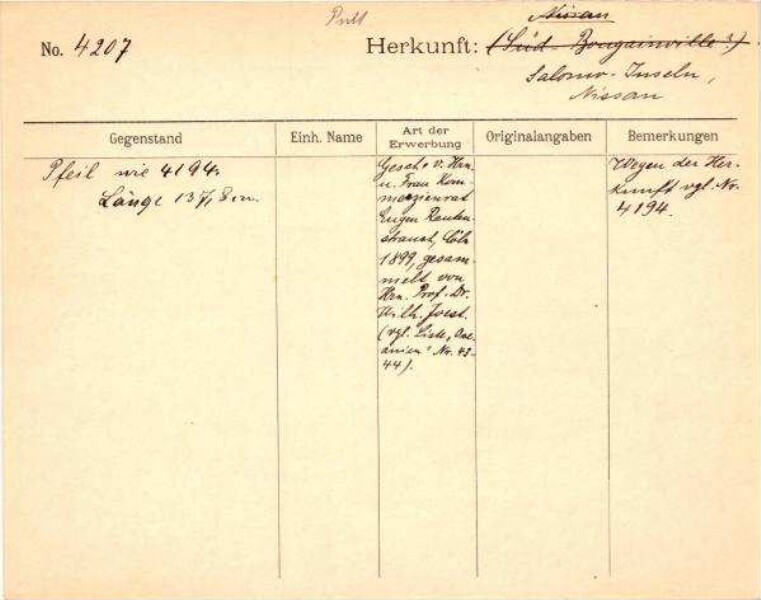 Pult
No. 4207
Herkunft: (Süd-Bougainville?)
Nissan
Salomo-Inseln,
Nissan
Gegenstand
Einh. Name
Art der
Erwerbung
Originalangaben
Bemerkungen
Pfeil wie 4194.
Länge 137,8 cm.
Gesch. v. Hrn.
u. Frau Kom-
merzienrat
Eugen Rauten-
strauch, Cöln
1899, gesam-
melt von
Hrn. Prof. Dr.
Wilh. Joest.
(vgl. Liste „Oze-
anien" Nr. 43-
44).
Wegen der Her-
kunft vgl. Nr.
4194.